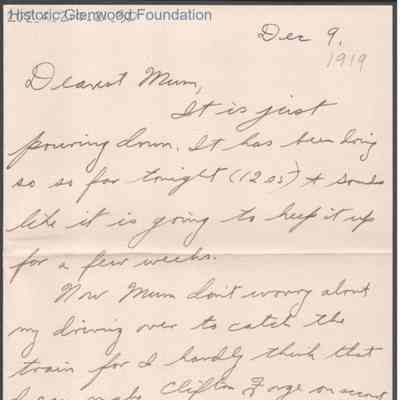 Historic Glenwood Foundation
Dec 9,
1919
Dearest Mum,
It is just
pouring down. It has been doing
so so far tonight (12 05) + sounds
like it is going to keep it up
for a few weeks.
Now Mum don't worry about
my driving over to catch the
train for I hardly think that
I can make Clifton Forge on account